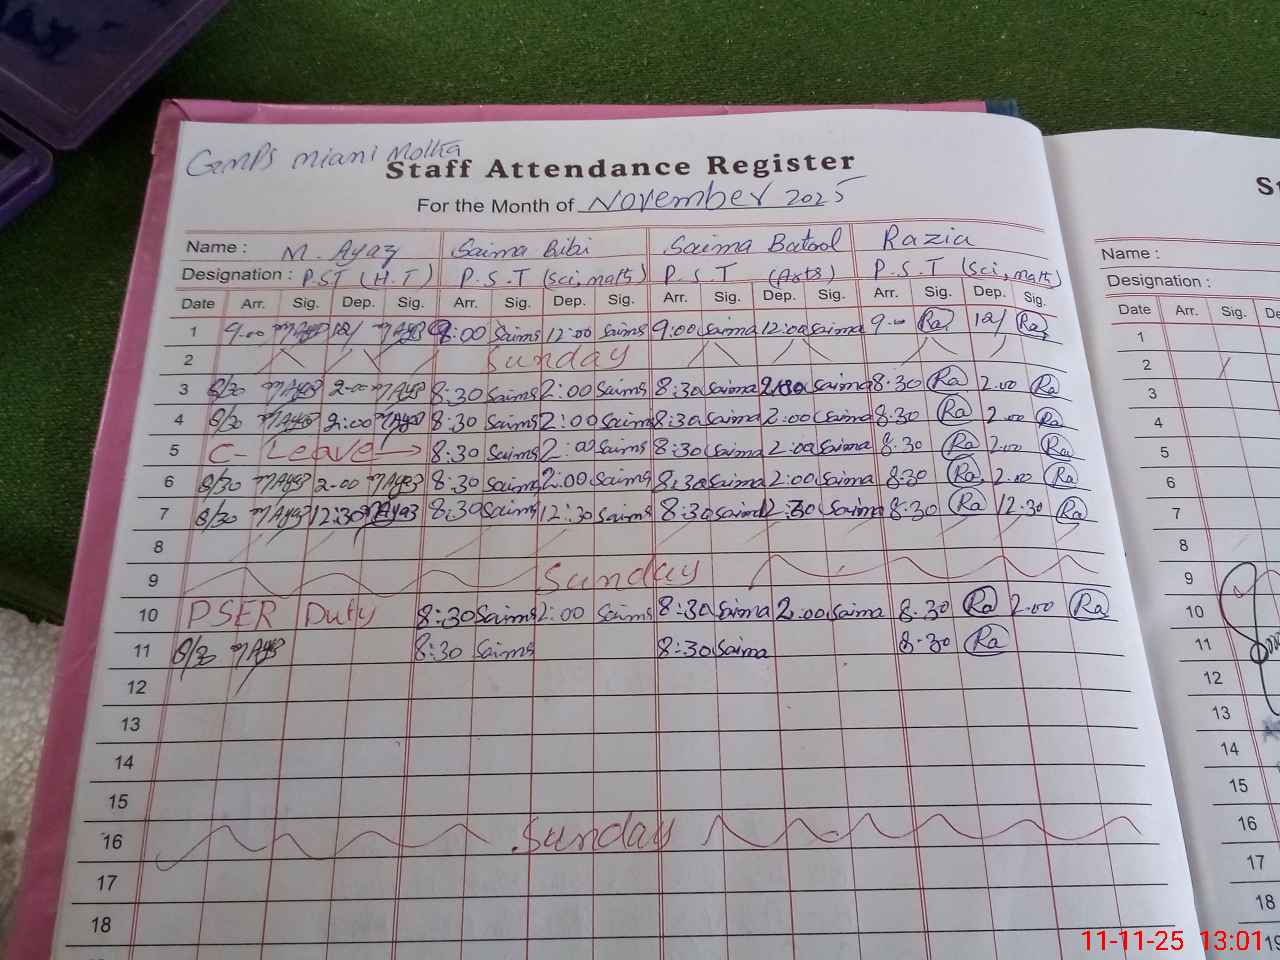 GMPS Miani Molka
Staff Attendance Register
For the Month of November 2025
Name : M. Ayaz Saima Bibi Saima Batool Razia
Designation : P.S.T (H.T) P.S.T (Sci, math) P.S.T (Arts) P.S.T (Sci, math)
Date Arr. Sig. Dep. Sig. Arr. Sig. Dep. Sig. Arr. Sig. Dep. Sig. Arr. Sig. Dep. Sig.
1 9-00 MAyaz 12/ MAyaz 9:00 Saima 12:00 Saima 9:00 Saima 12:00 Saima 9-00 Ra 12/ Ra
2 Sunday
3 8/30 MAyaz 2-00 MAyaz 8:30 Saima 2:00 Saima 8:30 Saima 2:00 Saima 8.30 Ra 2.00 Ra
4 8/30 MAyaz 2:00 MAyaz 8:30 Saima 2:00 Saima 8:30 Saima 2:00 Saima 8.30 Ra 2.00 Ra
5 C- Leave 8:30 Saima 2:00 Saima 8:30 Saima 2:00 Saima 8:30 Ra 2.00 Ra
6 8/30 MAyaz 2-00 MAyaz 8:30 Saima 2:00 Saima 8:30 Saima 2:00 Saima 8:30 Ra 2.00 Ra
7 8/30 MAyaz 12:30 MAyaz 8:30 Saima 12:30 Saima 8:30 Saima 12:30 Saima 8.30 Ra 12.30 Ra
8
9 Sunday
10 PSER Duty 8:30 Saima 2:00 Saima 8:30 Saima 2:00 Saima 8.30 Ra 2.00 Ra
11 8/30 MAyaz 8:30 Saima 8:30 Saima 8.30 Ra
12
13
14
15
16 Sunday
17
18
Name :
Designation :
Date Arr. Sig.
1
2
3
4
5
6
7
8
9
10
11
12
13
14
15
16
17
18
19
11-11-25 13:01